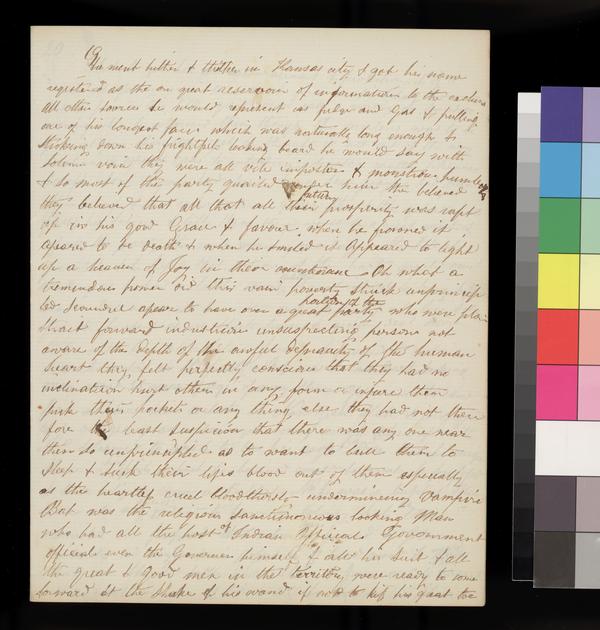 He went hither & thither in Kansas city & got his name
registered as the on great reservoir of information to the exclusion
all other sources he would represent as fudge and Gas & pulling
one of his longest faces which was naturally long enough &
Stroking down his frightful looking beard he would say with
solemn voice they were all vile imposters & monstrous humbugs
& so most of the party quailed under him they believed
they believed that all that all their future prosperity was rapt
up in his good Grace & favour when he frowned it
apeared to be death & when he smiled it appeared to light
up a heaven of Joy in their Oh what a
tremendous power did this vain poverty struck unprincip
led scoundrel apear to have over a great portion of the party who were plain
strait forward industrious unsuspecting persons not
aware of the depth of the awful depravity of the human
heart they felt perfectly conscious that they had no
inclination hurt others in any form or injure them
pick their pockets or any thing else they had not there
fore the least suspicion that there was any one near
them so unprincipled as to want to lull them to
Sleep & suck their lifes blood out of them especially
as the heartless cruel bloodthirsty undermineing Vampire
But was the religious Sanctimonious looking Man
who had all the host of Indian Officials Government
officials even the Governer himself & all his Suit & all
the great & good men in the Territory were ready to come
forward at the Shake of his wand if not to kiss his great toe